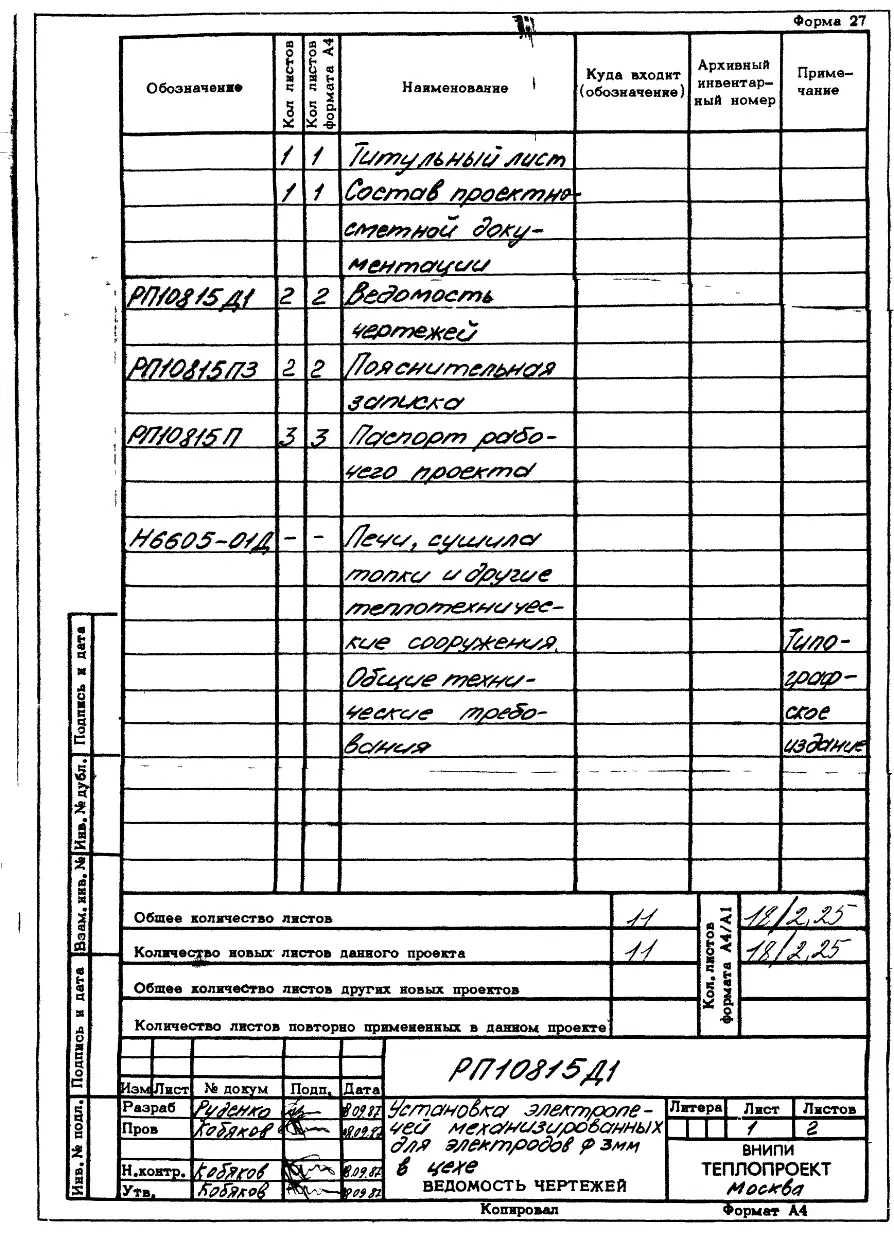 Форма 27
Обозначение Кол листов Кол листов формата А4 Наименование Куда входит (обозначение) Архивный инвентар- ный номер Приме- чание
1 1 Титульный лист
1 1 Состав проектно-
сметной доку-
ментации
РП10815Д1 2 2 Ведомость
чертежей
РП10815ПЗ 2 2 Пояснительная
записка
РП10815П 3 3 Паспорт рабо-
чего проекта
Н6605-01Д - - Печи, сушила
топки и другие
теплотехничес-
кие сооружения. Типо-
Общие техни- граф-
ческие требо- ское
вания издание
Общее количество листов 11 18/2,25
Количество новых листов данного проекта 11 18/2,25
Общее количество листов других новых проектов
Количество листов повторно примененных в данном проекте
Кол. листов формата А4/А1
Подпись и дата
Инв. № дубл.
Взам. инв. №
Подпись и дата
Инв. № подл.
РП10815Д1
Изм Лист № докум Подп. Дата
Разраб Руденко 18.09.87
Пров Кобяков 18.09.87
Н.контр. Кобяков 18.09.87
Утв. Кобяков 18.09.87
Установка электропе-
чей механизированных
для электродов φ 3мм
в цехе
ВЕДОМОСТЬ ЧЕРТЕЖЕЙ
Литера Лист Листов
1 2
ВНИПИ
ТЕПЛОПРОЕКТ
Москва
Копировал Формат А4